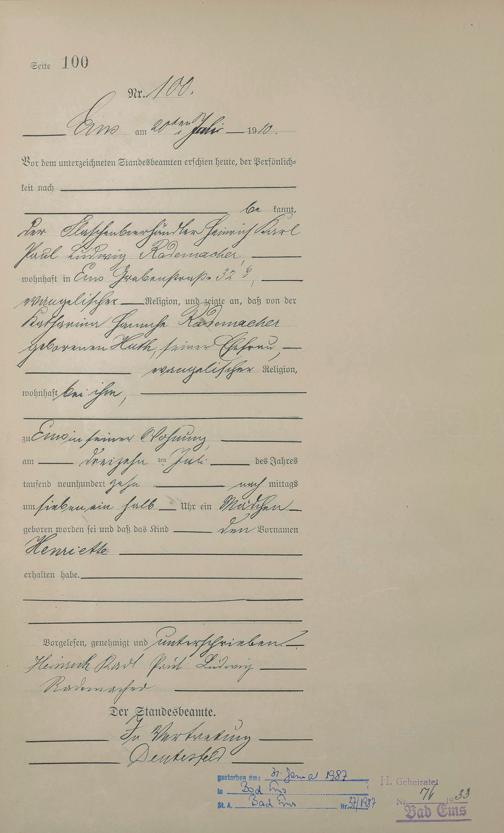 Seite 100
Nr. 100.
Ems am 20ten Juli 1910.
Vor dem unterzeichneten Standesbeamten erschien heute, der Persönlich-
keit nach
be kannt,
der Flaschenbierhändler Heinrich Karl
Paul Ludwig Rademacher,
wohnhaft in Ems Grabenstraße 32
evangelischer Religion, und zeigte an, daß von der
Katharina Rademacher
geborenen Huth, seiner Ehefrau,
evangelischer Religion,
wohnhaft bei ihm,
zu Ems in seiner Wohnung
am dreizehn ten Juli des Jahres
tausend neunhundert zehn nach mittags
um sieben ein halb Uhr ein Mädchen
geboren worden sei und daß das Kind den Vornamen
Henriette
erhalten habe.
Vorgelesen, genehmigt und unterschrieben
Heinrich Karl Paul Ludwig
Rademacher
Der Standesbeamte.
In Vertretung
gestorben am: 31. Januar 1987
in Bad Ems
St. A. Bad Ems Nr. 37/1987
H. Geheiratet
Nr. 76 1933
Bad Ems